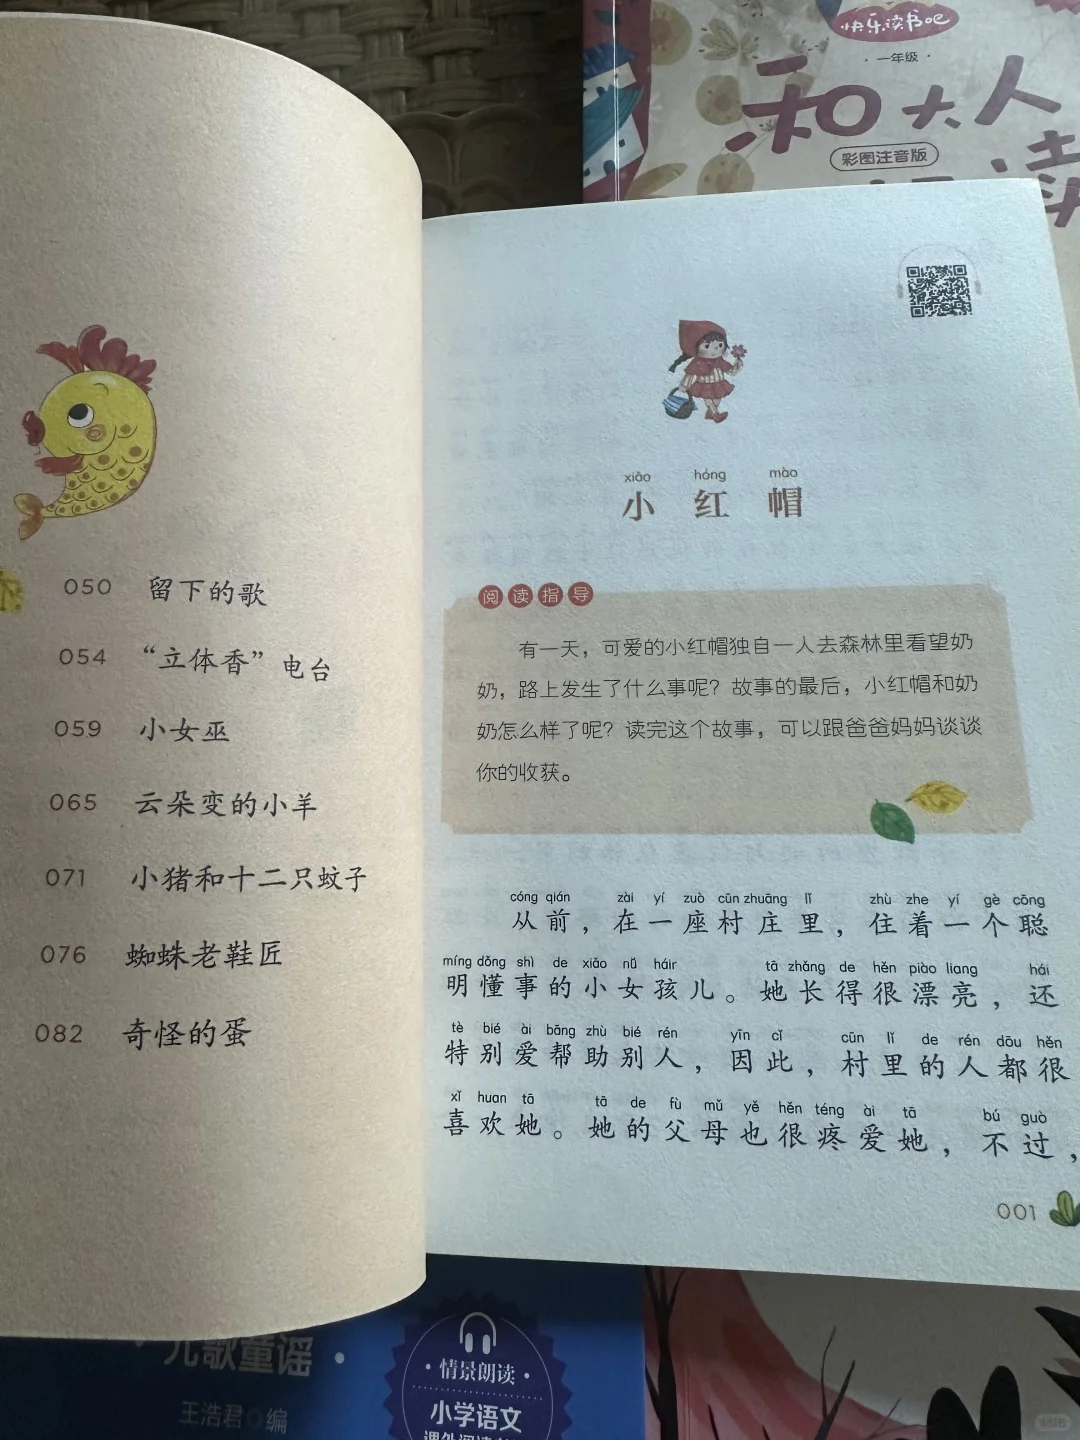 快乐读书吧
·一年级·
和大人
彩图注音版
读
050 留下的歌
054 “立体香”电台
059 小女巫
065 云朵变的小羊
071 小猪和十二只蚊子
076 蜘蛛老鞋匠
082 奇怪的蛋
xiǎo hóng mào
小红帽
阅读指导
有一天，可爱的小红帽独自一人去森林里看望奶
奶，路上发生了什么事呢？故事的最后，小红帽和奶
奶怎么样了呢？读完这个故事，可以跟爸爸妈妈谈谈
你的收获。
cóng qián zài yí zuò cūn zhuāng lǐ zhù zhe yí gè cōng
从前，在一座村庄里，住着一个聪
míng dǒng shì de xiǎo nǚ háir tā zhǎng de hěn piào liang hái
明懂事的小女孩儿。她长得很漂亮，还
tè bié ài bāng zhù bié rén yīn cǐ cūn lǐ de rén dōu hěn
特别爱帮助别人，因此，村里的人都很
xǐ huan tā tā de fù mǔ yě hěn téng ài tā bú guò
喜欢她。她的父母也很疼爱她，不过，
001
儿歌童谣·
王浩君 编
·情景朗读·
小学语文